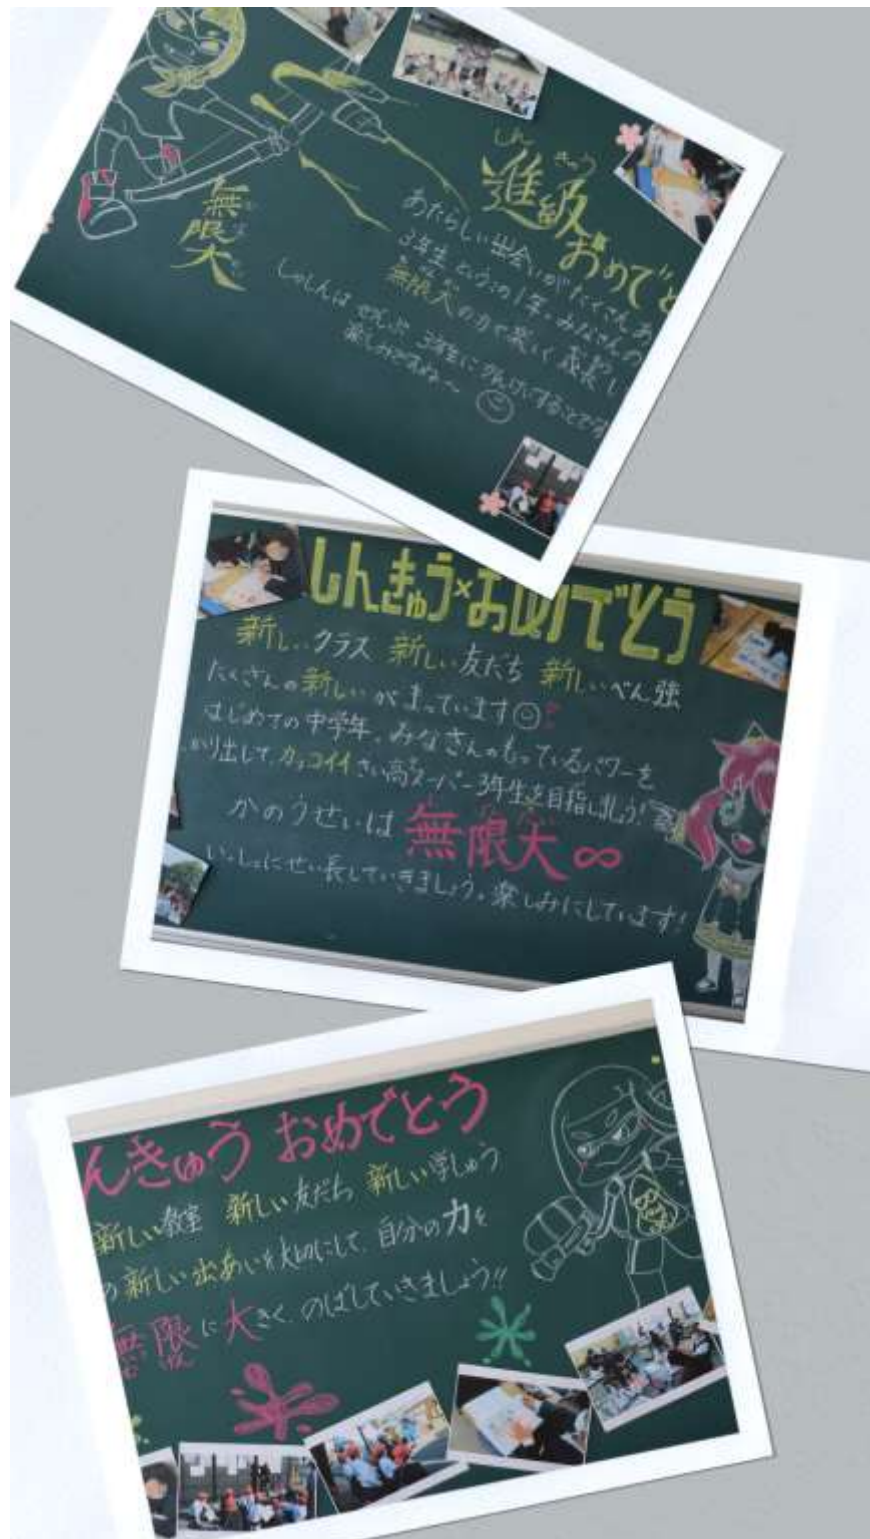 しん きゅう
進級おめでと
あたらしい出会いがたくさんあ
3年生という、この1年。みなさんの
無限大の力で楽しく成長し
しゃしんは ぜんぶ 3年生にかんけいすることです
楽しみですね〜
無限大
しんきゅう×おめでとう
新しいクラス 新しい友だち 新しいべん強
たくさんの新しいがまっています
はじめての中学年。みなさんのもっているパワーを
かり出して、カッコイイさい高スーパー3年生を目指しましょう!
かのうせいは 無限大∞
いっしょにせい長していきましょう。楽しみにしています!
んきゅう おめでとう
新しい教室 新しい友だち 新しい学しゅう
の新しい出あいを大切にして、自分の力を
無限に大きく、のばしていきましょう!!